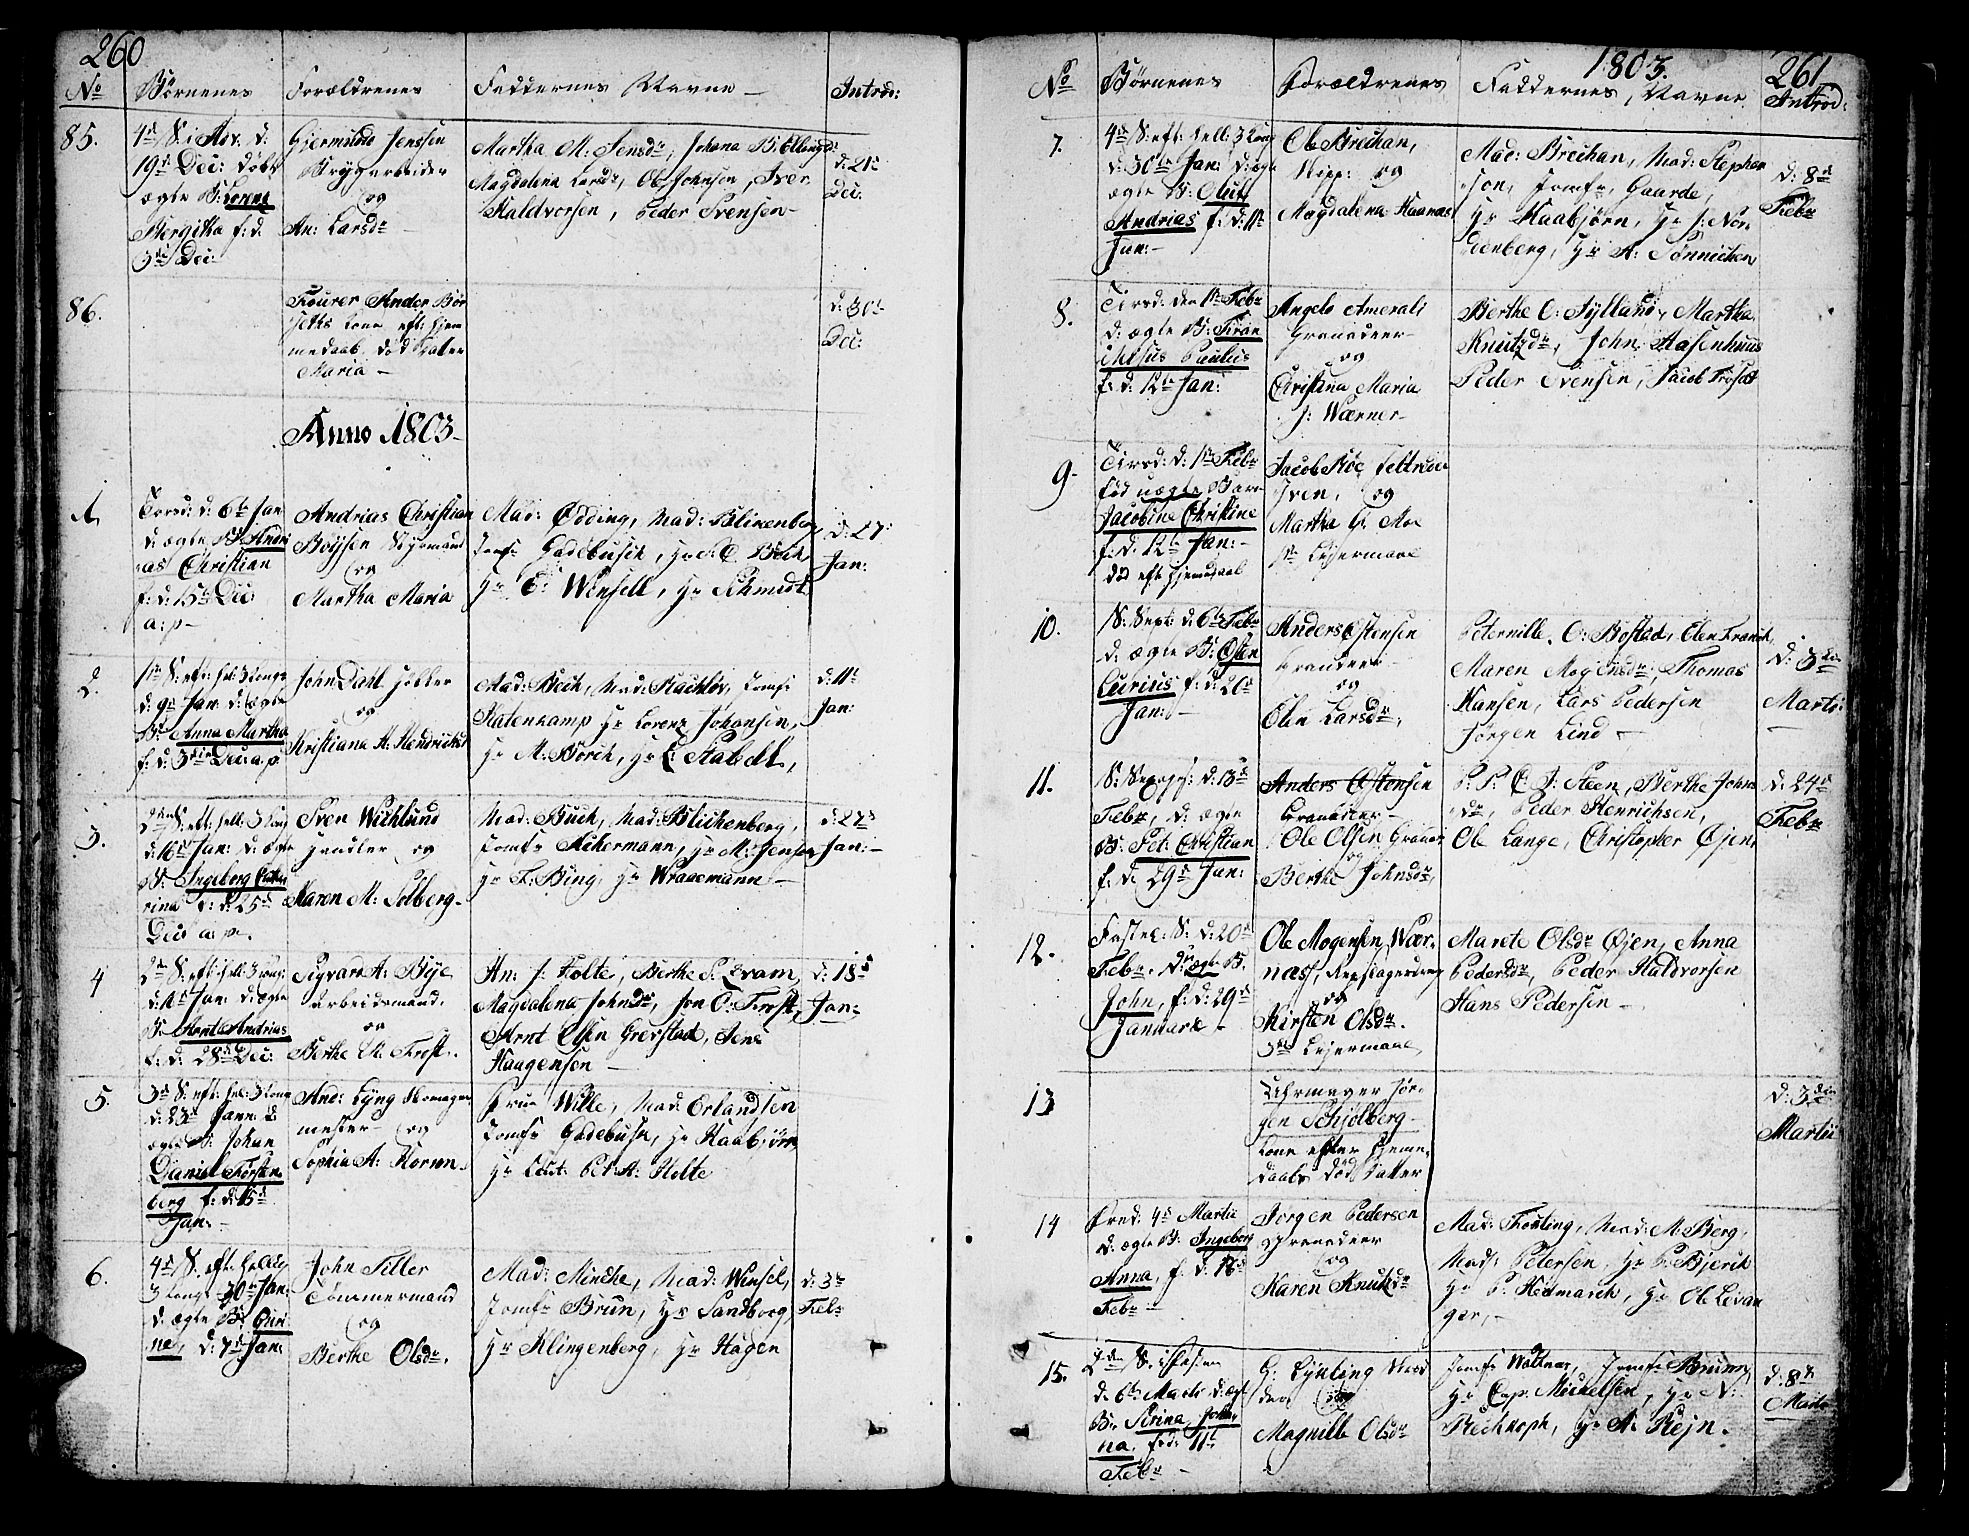 260
No Børnenes Forældrenes Faddernes Navne Introd:
85.
4de S. i Adv. d.
19de Dec: døbt
ægte B:
Birgitha f: d:
3de Dec:
Gjermund Jenssen
Brygarbeider
og
An: Larsdr
Martha M: Jensdr, Johana B: Ellingsdr
Magdalena Larsdr, Ole Johnsen, Iver
Haldvorsen, Peder Svensen
d: 21de
Dec:
86.
Fourer Ander Bør
seths Kone eft: Hjem
medaab, død Datter
Maria
d: 30te
Dec:
Anno 1803
1.
Torsd: d: 6te Jan
d: ægte B. Andri
as Christian
f: d: 15de Dec
a: p
Andrias Christian
Boysen Styrmand
og
Martha Maria
Mad: Ødding, Mad: Blikenberg
Jomfr Gadebusch, Hr C. Bech
Hr C: Wensell, Hr Schmidt
d: 27:
Jan:
2.
1ste S: eft: hel: 3 Kong
d: 9de Jan: d: ægte
B: Anna Martha
f: d: 3die Dec: a. p
John Dahl
og
Kristiana H: Hendrichsd
Mad: Bech, Mad: Jomfr
Katencamp Hr Lorenz Johansen,
Hr M: Borch, Hr
d: 11te
Jan:
3.
2den S: eft: hell: 3 Kong
d: 16de Jan: d: ægte
B. Ingeborg Catha
rina f: d: 25de
Dec a: p.
Sven Wichlund
Handler og
Karen M: Solberg
Mad: Buch, Mad: Blichenberg,
Jomfr Akkermann, Hr M: Jensen
Hr F: Bing, Hr Wragemann
d: 27de
Jan:
4
2de S: eft: hell: 3 Kong:
d: 16de Jan: d: ægte
B. Arnt Andrias
f: d: 28de Dec:
Sigvard A: Bye
Arbeidsmand.
og
Berthe M: Frost.
An: J: Holte, Berthe P: Qvam,
Magdalena Johnsdr, Jon O: Frost,
Arnt Olsen Grevstad, Jens
Haagensen
d: 18de
Jan:
5.
3de S: eft: hel: 3 Kong
d: 23de Jann: d:
ægte B. Johan
Daniel Torsten
berg f: d: 15de
Jan:
And: Lyng Skomager
mester og
Sophia A: Horun
Frue Wille, Mad: Erlandsen
Jomfr Gadebusk, Hr Kaabjørn
Hr Leut: Pet: A: Holte
6.
4de S. eft: hellig
3 Kong: 30te Jan:
d: ægte B:
d: 7de Jan:
John Tiller
Tømmermand
og
Berthe Olsdr.
Mad: Minche, Mad: Wensel,
Jomfr Brun, Hr Sandborg,
Hr Klingenberg, Hr Hagen
d: 3de
Febr
1803. 261
No Børnenes Forældrenes Faddernes, Navne Introd:
7.
4de S: eft: hell: 3 Kong
d: 30te Jan: d: ægte
B: Oluf
Andrias f: d: 11te
Jan:
Ole Breihan,
Skipp: og
Magdalena Haanas
Mad: Breihan, Mad: Stephan
sen, Jomfr, Gaarde,
Hr Kaabjørn, Hr J: Nor
denberg, Hr A: Sønnichen
d: 8de
Febr
8.
Tirsd: den 1ste Febr
d: ægte B: Fran
ciskus Paulus
f: d: 12te Jan:
Angelo Amerali
Granadeer
og
Christina Maria
J: Wærner
Berthe O: Sylland, Martha
Knutzdr, John Aasenhuus
Peder Svensen, Jacob Frost
9.
Tirsd: d: 1ste Febr
fød uægte Barn
Jacobine Christine
f: d: 12te Jan:
død eft Hjemdaab
Jacob Røe
og
Martha G: Moe
1ste Lejermaal
10.
S: Sept: d: 6te Febr
d: ægte B: Østen
f: d: 20de
Jan:
Anders Østensen
Granadeer
og
Elen Larsdr,
Peternille. O: Bostad, Elen Franch,
Maren Mogensdr, Thomas
Hansen, Lars Pedersen
Jørgen Lind
d: 3die
Marti:
11.
S: Sexages: d: 13de
Febr, d: ægte
B: Pet: Christian
f: d: 29de Jan:
Anders Østensen
Granadeer
Ole Olsen Granad
og
Berthe Johnsdr,
P: P: E: J: Steen, Berthe Johns
dr, Peder Henrichsen,
Ole Lange, Christopher Øjen,
d: 24de
Febr
12.
Fastel: S: d: 20de
Febr. d: uægte B.
John, f: d: 29de
Januarii
Ole Mogensen, Wær-
nas, Repslagerdreng
og
Kirsten Olsdr.
3die Lejermaal
Marete Olsdr Øjen, Anna
Pedersdr, Peder Haldvorsen
Hans Pedersen
13
Uhrmager Jør-
gen Schjolberg
Kone efter Hjemme
daabs død Datter
d: 3die
Martii
14
Fred: 4de Martii
d: ægte B: Ingeborg
Anna, f: d: 18de
Febr
Jørgen Pedersen
Granadeer
og
Karen Knutsdr
Mad: Frosting, Mad: M: Berg,
Mad: Petersen, Hr P: Bjerch
Hr P: Hedmarck, Hr Ole Levan
ger,
15.
2den S: i Fasten
d: 6te Marti d: ægt
B: Serina Johan
na. fød: 11te
Febr
G: Lynbing
og
Magnille Olsdr
Jomfr Wattnas, Jomfr Brunn,
Hr Cap: Michelsen, Hr N:
Hr A: Rejn.
d: 8de
Marti